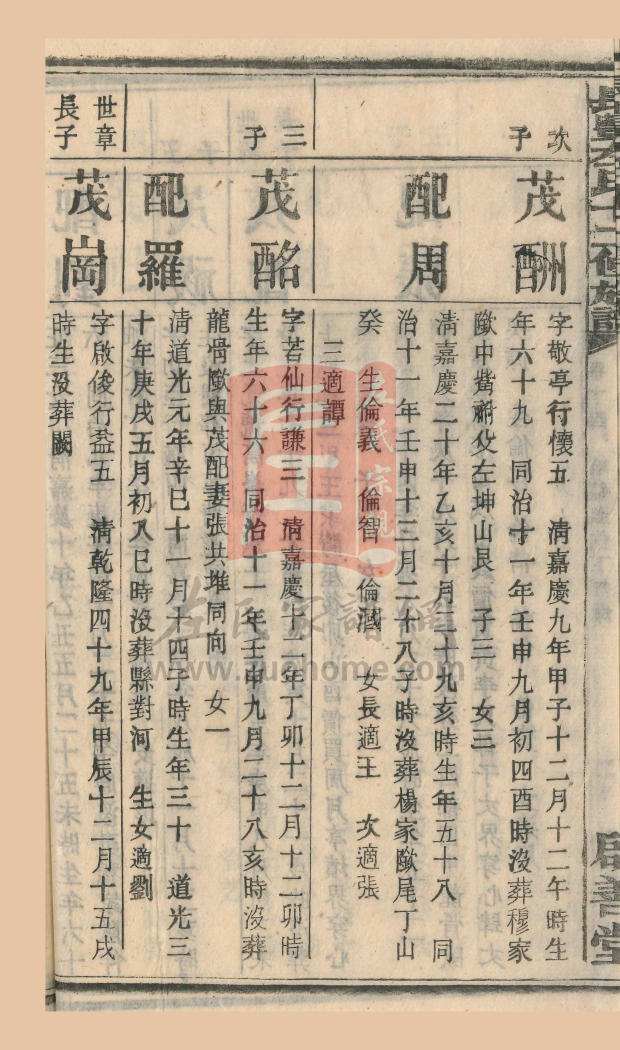 次子
茂酬
字敬亭行懷五　清嘉慶九年甲子十二月十二午時生
年六十九　同治十一年壬申九月初四酉時沒葬穆家
坤山艮　子三　女三
配周
清嘉慶二十年乙亥十月二十九亥時生年五十八　同
治十一年壬申十二月二十八子時沒葬楊家尾丁山
癸　生倫義　倫智　倫　女長適王　次適張
三適譚
三子
茂酩
字若仙行謙三　清嘉慶十二年丁卯十二月十二卯時
生年六十六　同治十一年壬申九月二十八亥時沒葬
龍骨與茂配妻張共堆同向　女一
配羅
清道光元年辛巳十一月十四子時生年三十　道光三
十年庚戌五月初八巳時沒葬縣對河　生女適劉
世章長子
茂崗
字啟俊行益五　清乾隆四十九年甲辰十二月十五戌
時生沒葬闕
啟善堂
左氏家譜網
www.zuohome.com